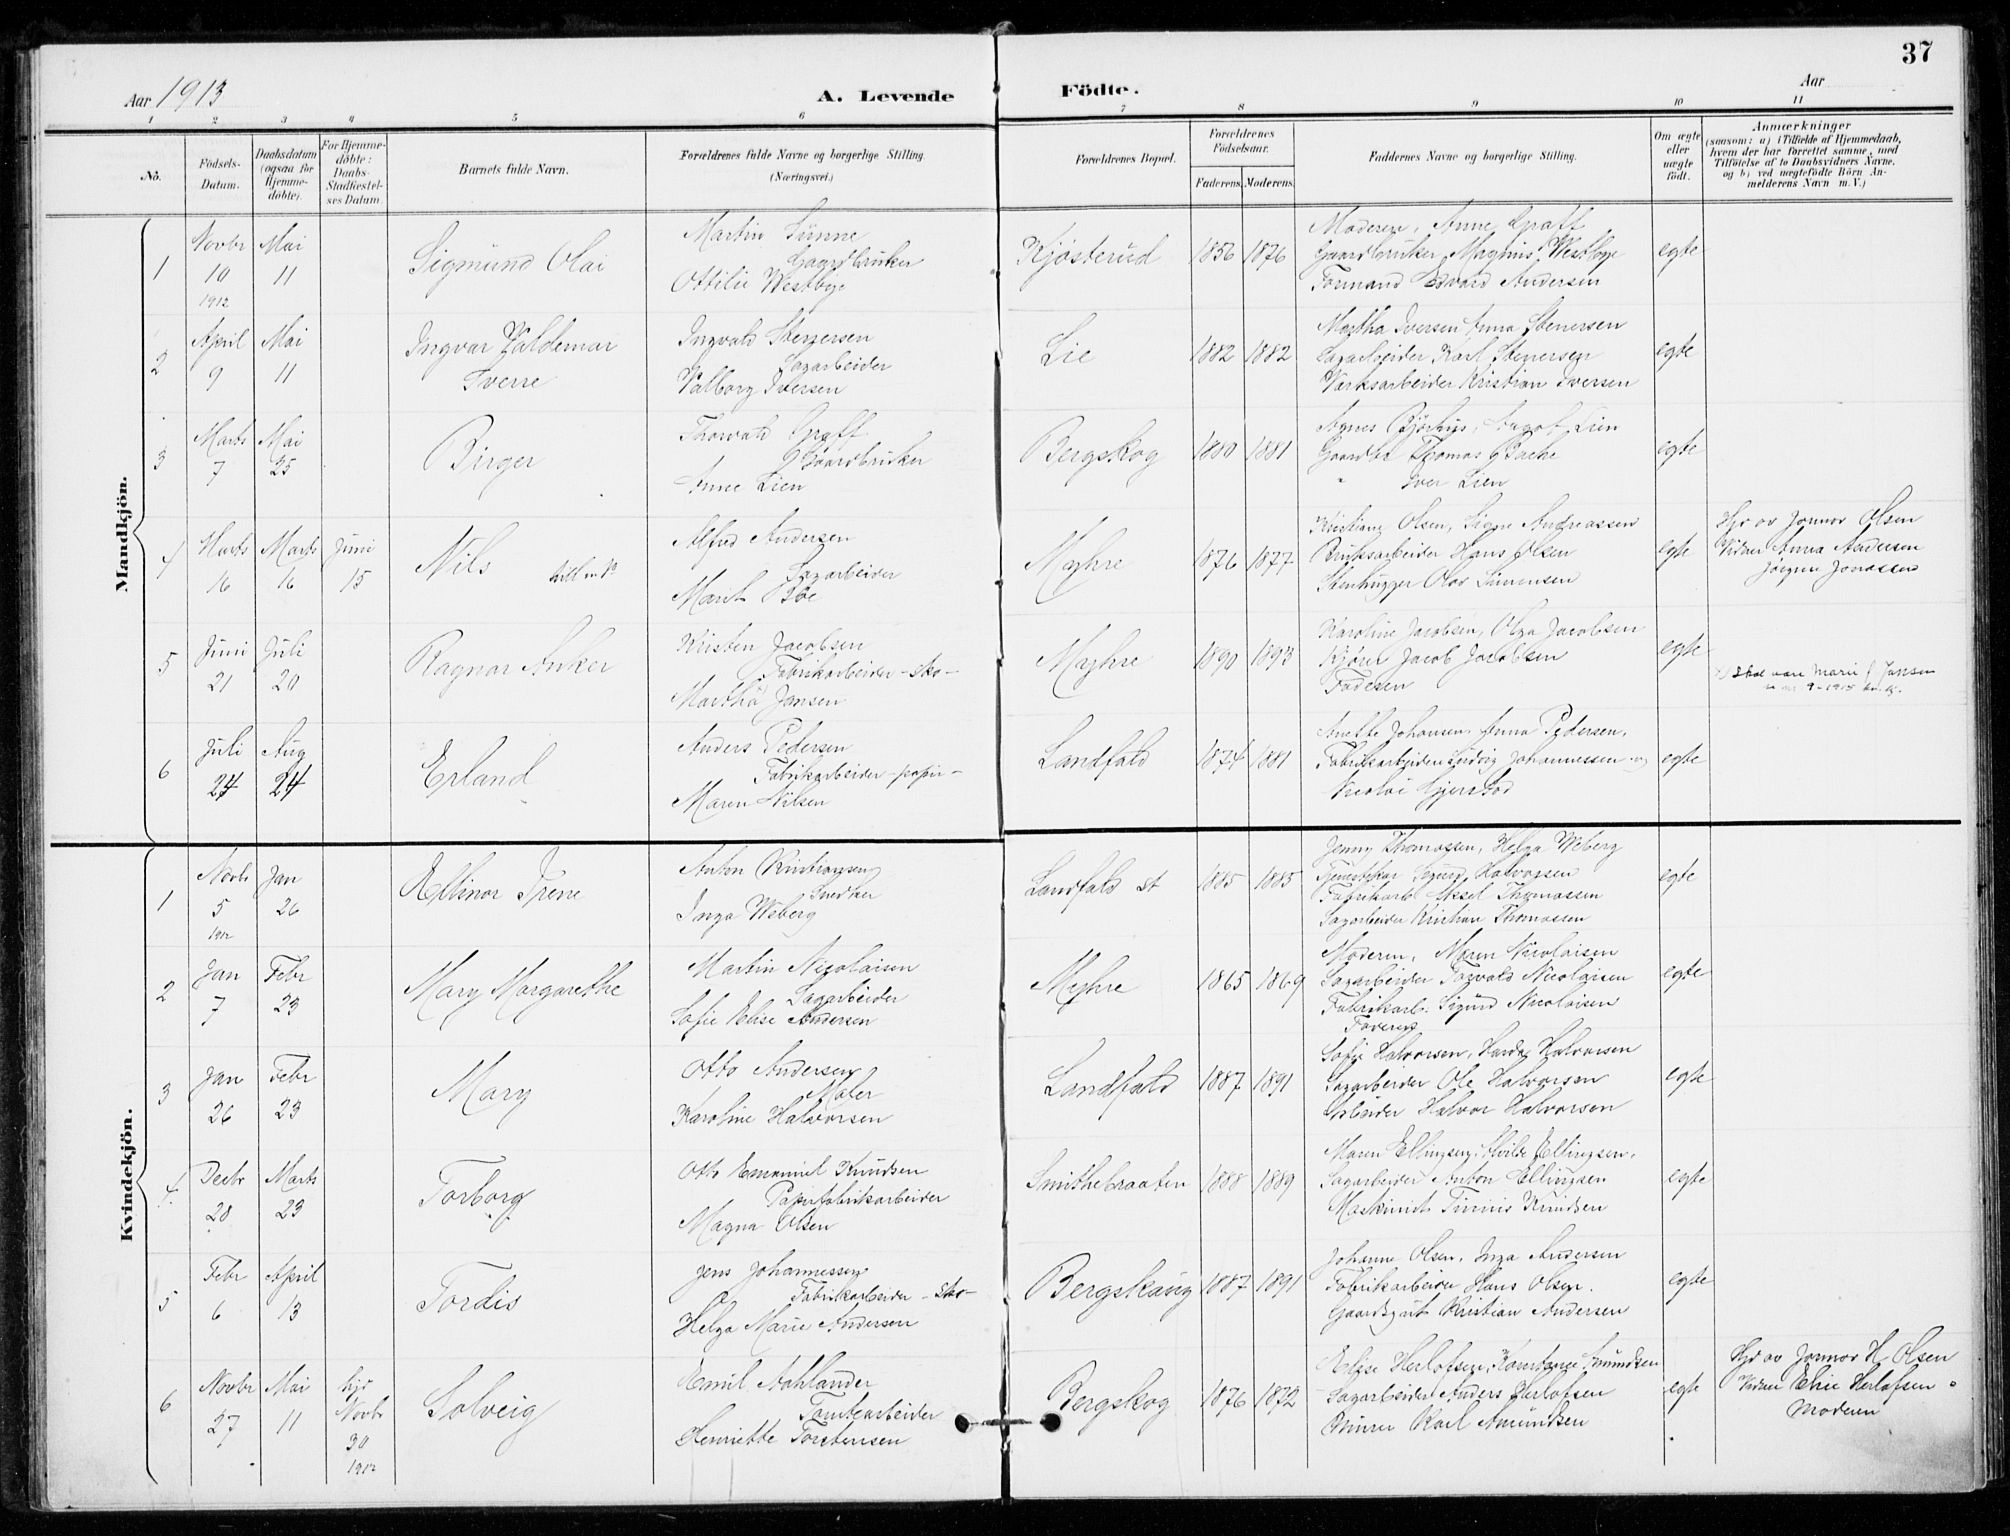 37
Aar 1913
A. Levende Födte.
Aar
1 2 3 4 5 6 7 8 9 10 11
No.
Födsels-Datum.
Daabsdatum (ogsaa for Hjemmedöbte).
For Hjemmedöbte: Daabs-Stadfæstelses Datum.
Barnets fulde Navn.
Forældrenes fulde Navne og borgerlige Stilling. (Næringsvei.)
Forældrenes Bopæl.
Forældrenes Födselsaar.
Faderens. Moderens.
Faddernes Navne og borgerlige Stilling.
Om ægte eller uægte födt.
Anmærkninger
(saasom: a) i Tilfælde af Hjemmedaab, hvem der har forrettet samme, med Tilföielse af to Daabsvidners Navne. og b) ved uægtefödte Börn Anmelderens Navn m. V.)
Mandkjön.
1 Novbr 10 1912 Mai 11 Sigmund Olai
Martin Sünne
Gaardbruker
Ottilie Westbye
Kjøsterud 1856 1876
Moderen, Anne Graff
Gaardbruker Magnus Westbye
Formand Edvard Andersen
egte
2 April 9 Mai 11 Ingvar Valdemar
Sverre
Ingvald Stenersen
Sagarbeider
Valborg Iversen
Lie 1882 1882
Martha Iversen Anna Stenersen
Sagarbeider Karl Stenersen
Verksarbeider Kristian Iversen
egte
3 Marts 7 Mai 25 Birger
Thorvald Graff
Gaardbruker
Anne Lien
Bergskog 1880 1881
Agnes Bjørhus, Aagot Lien
Gaardbr Thomas Bache
" Iver Lien
egte
4 Marts 16 Marts 16 Juni 15 Nils
Alfred Andersen
Sagarbeider
Marit Boe
Myhre 1876 1877
Kristiane Olsen, Signe Andreassen
Bruksarbeider Hans Olsen
Stenhugger Olav Simensen
egte
Hjd av Jormor Olsen
Vidner Anna Andersen
Jørgine Jonassen
5 Juni 21 Juli 20 Ragnar Anker
Kristen Jacobsen
Fabrikarbeider - sko -
Martha Jansen
Myhre 1890 1893
Karoline Jacobsen, Olga Jacobsen
Kjører Jacob Jacobsen
Faderen
egte
skal være Marie f Jansen
6 Juli 24 Aug 24 Erland
Anders Pedersen
Fabrikarbeider - papir -
Maren Nilsen
Landfald 1874 1881
Anette Johansen, Anna Pedersen,
Fabrikarbeider Ludvig Johannessen og
Nicolai Gjerstad
egte
Kvindekjön.
1 Novb 5 1912 Jan 26 Ellinor Irene
Anton Kristiansen
Snedker
Inga Weberg
Landfald st 1885 1885
Jenny Thomassen, Helga Weberg
Tjenestekar Sigurd Halvorsen
Fabrikarb Aksel Thomassen
Sagarbeider Kristian Thomassen
egte
2 Jan 7 Febr 23 Mary Margarethe
Martin Nicolaisen
Sagarbeider
Sofie Elise Andersen
Myhre 1865 1869
Moderen, Maren Nicolaisen
Sagarbeider Torvald Nicolaisen
Fabrikarb. Sigurd Nicolaisen
Faderen
egte
3 Jan 26 Febr 23 Mary
Otto Andersen
Maler
Karoline Halvorsen
Landfald 1887 1891
Sofie Halvorsen, Harda Halvorsen
Sagarbeider Ole Halvorsen
Arbeider Halvor Halvorsen
egte
4 Decbr 28 Marts 23 Torborg
Otto Emanuel Knudsen
Papirfabrikarbeider
Magna Olsen
Smithebraaten 1888 1889
Maren Ellingsen, Hilda Ellingsen,
Sagarbeider Anton Ellingsen
Maskinist Tinius Knudsen
egte
5 Febr 6 April 13 Tordis
Jens Johannessen
Fabrikarbeider - sko -
Helga Marie Andersen
Bergskaug 1887 1891
Johanne Olsen, Inga Andersen
Fabrikarbeider Hans Olsen.
Gaardsgut Kristian Andersen
egte
6 Novbr 27 Mai 11 hjd Novbr 30 1912 Solveig
Emil Aahlander
Tomtearbeider
Henriette Torstensen
Bergskog 1876 1872
Elise Herlofsen, Konstanse Amundsen
Sagarbeider Anders Herlofsen
Murer Karl Amundsen
egte
Hjd av Jormor H. Olsen
Vidner Elise Herlofsen
Moderen